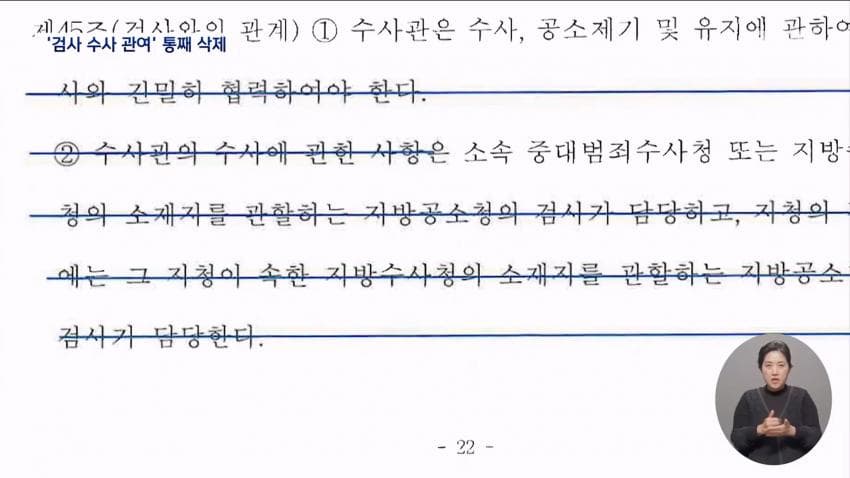 제45조(검사와의 관계) ① 수사관은 수사, 공소제기 및 유지에 관하여
'검사 수사 관여' 통째 삭제
사와 긴밀히 협력하여야 한다.
② 수사관의 수사에 관한 사항은 소속 중대범죄수사청 또는 지방
청의 소재지를 관할하는 지방공소청의 검사가 담당하고, 지청의
에는 그 지청이 속한 지방수사청의 소재지를 관할하는 지방공소
검사가 담당한다.
- 22 -